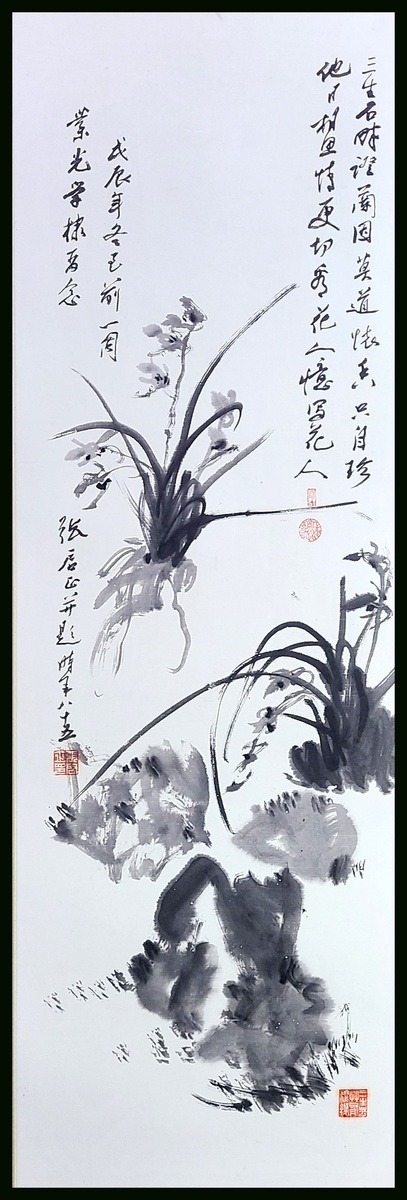 三生石畔證蘭因莫道懷香只自珍
他日相思情更切看花人憶寫花人
戊辰年冬至前一周
業光学棣留念
張 并題時年八十五